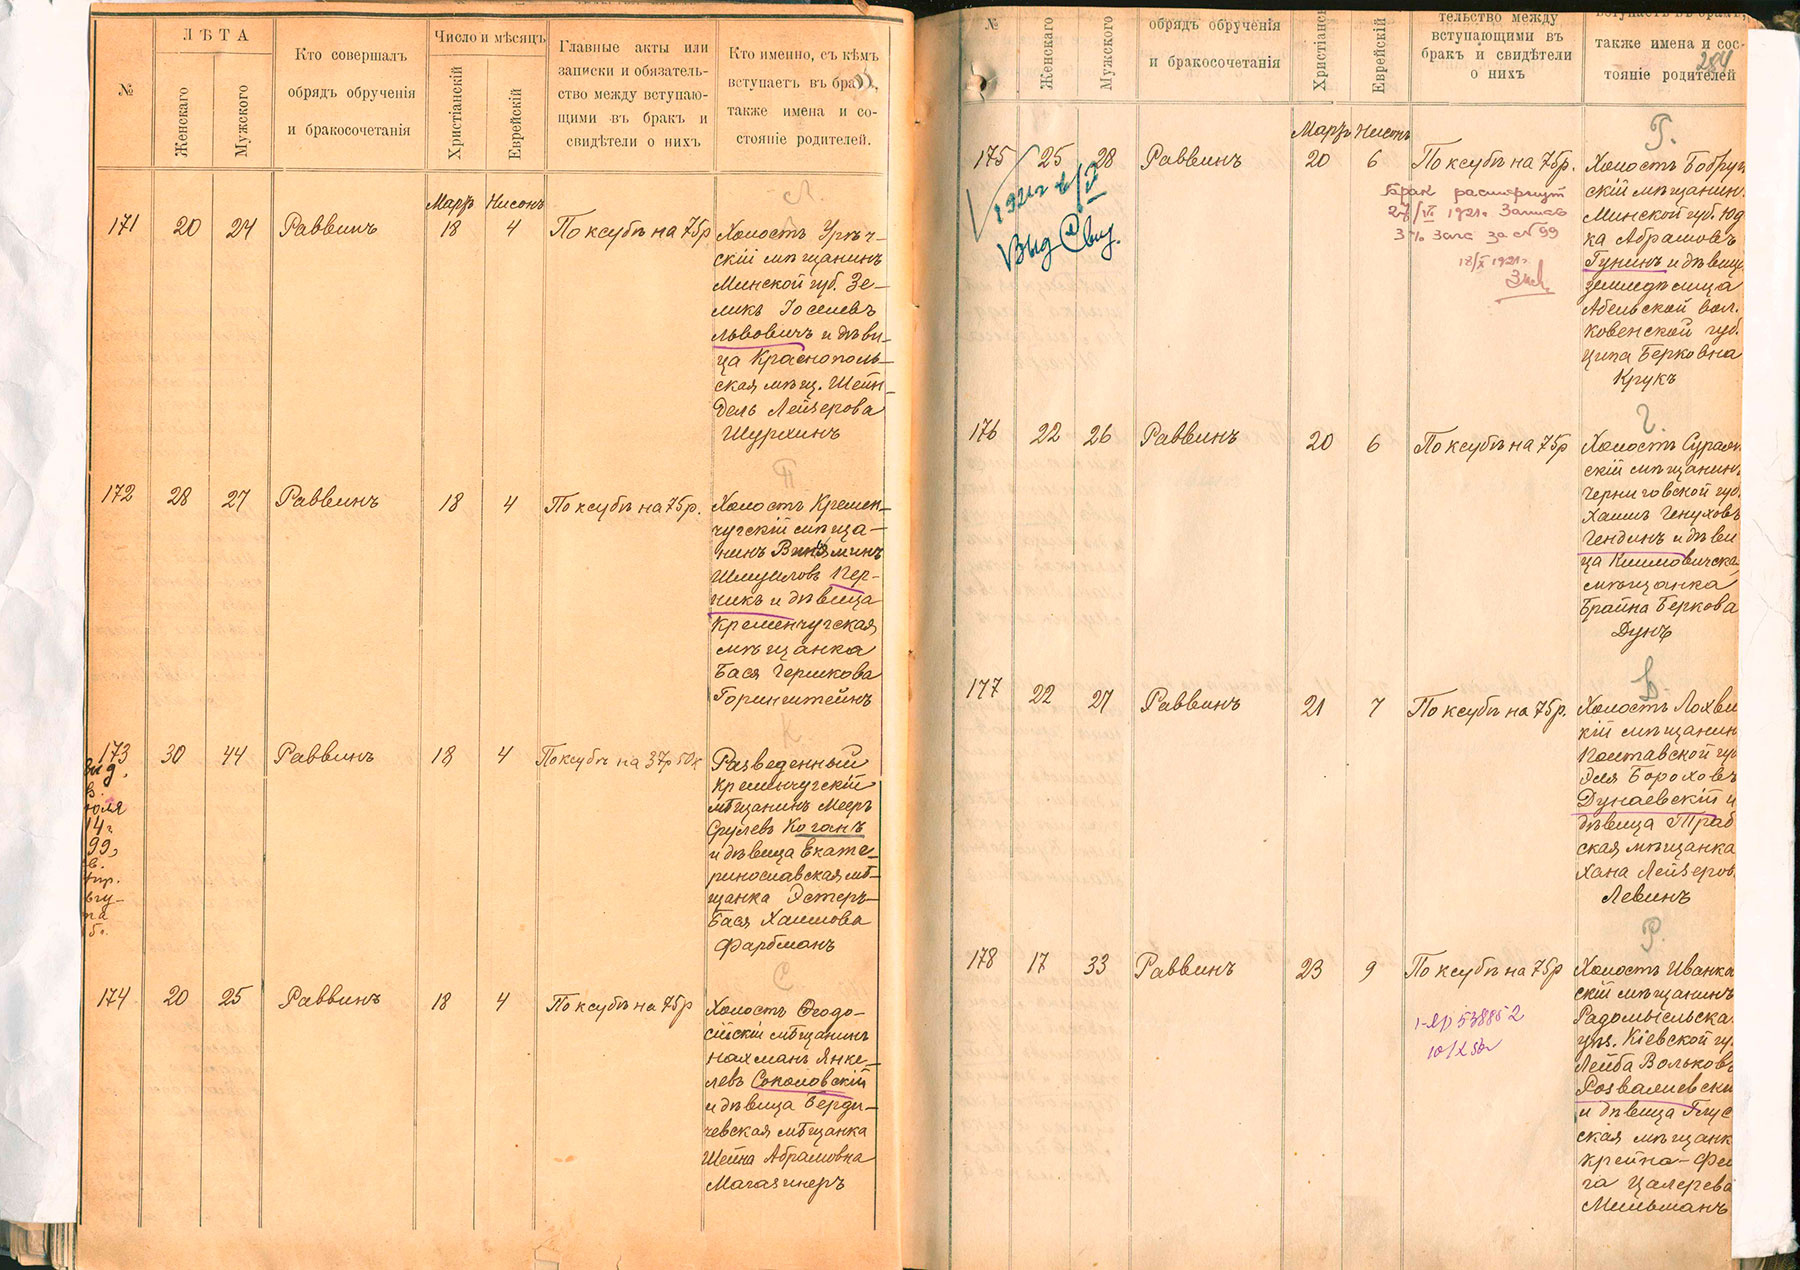 №
ЛѢТА
Женскаго
Мужского
Кто совершалъ
обрядъ обрученія
и бракосочетанія
Число и мѣсяцъ
Христіанскій
Еврейскій
Главные акты или
записки и обязатель-
ство между вступаю-
щими въ бракъ и
свидѣтели о нихъ
Кто именно, съ кѣмъ
вступаетъ въ бракъ,
также имена и со-
стояніе родителей.
Мартъ Нисонъ
Л.
171 20 24 Раввинъ 18 4 По ксубѣ на 75р
Холостъ Урѣч-
скій мѣщанинъ
Минской губ. Зе-
ликъ Іоселевъ
Львовичъ и дѣви-
ца Краснополь-
ская мѣщ. Шейн-
дель Лейзерова
Шурхинъ
П
172 28 27 Раввинъ 18 4 По ксубѣ на 75р.
Холостъ Кремен-
чугскій мѣща-
нинъ
Шмуиловъ Пер-
никъ и дѣвица
Кременчугская
мѣщанка
Бася Гершкова
Горинштейнъ
К
173 30 44 Раввинъ 18 4 По ксубѣ на 37р 50к
Разведенный
Кременчугскій
мѣщанинъ Мееръ
Срулевъ Коганъ
и дѣвица Екате-
ринославская мѣ-
щанка Эстеръ-
Бася Хаимова
Фарбманъ
С
174 20 25 Раввинъ 18 4 По ксубѣ на 75р
Холостъ Ѳеодо-
сійскій мѣщанинъ
Нахманъ Янке-
левъ Соколовскій
и дѣвица Берди-
чевская мѣщанка
Шейна Абрамовна
Магазинеръ
№
Женскаго
Мужского
обрядъ обрученія
и бракосочетанія
Христіанс
Еврейскій
тельство между
вступающими въ
бракъ и свидѣтели
о нихъ
вступаетъ въ бракъ,
также имена и сос-
тояніе родителей
Мартъ Нисонъ
Г.
175 25 28 Раввинъ 20 6 По ксубѣ на 75р.
Брак расторгнут
1921г. Запись
Загс за № 99
18/X 1921г.
Холостъ Бобруй
скій мѣщанин.
Минской губ. Юд
ка Абрамовъ
Гунинъ и дѣвиц.
земледѣлица
Абельской вол.
Ковенской губ.
Ципа Берковна
Крукъ
Г.
176 22 26 Раввинъ 20 6 По ксубѣ на 75р
Холостъ Сураж
скій мѣщанин.
Черниговской губ.
Хаимъ Генуховъ
Гендинъ и дѣви
ца Климовичска
мѣщанка
Брайна Беркова
Дунъ
Д.
177 22 27 Раввинъ 21 7 По ксубѣ на 75р.
Холостъ Лохви
кій мѣщанин
Полтавской гу
Эля Бороховъ
Дунаевскій и
дѣвица Траб
ская мѣщанка
Хана Лейзеров.
Левинъ
Р.
178 17 33 Раввинъ 23 9 По ксубѣ на 75р
Холостъ Иванко
скій мѣщанинъ
Радомысльска.
уѣз. Кіевской гу.
Лейба Вольковъ
Розвалиевски
и дѣвица Глус
ская мѣщанк
Крейна-Фей
га Цалерева
Мильманъ